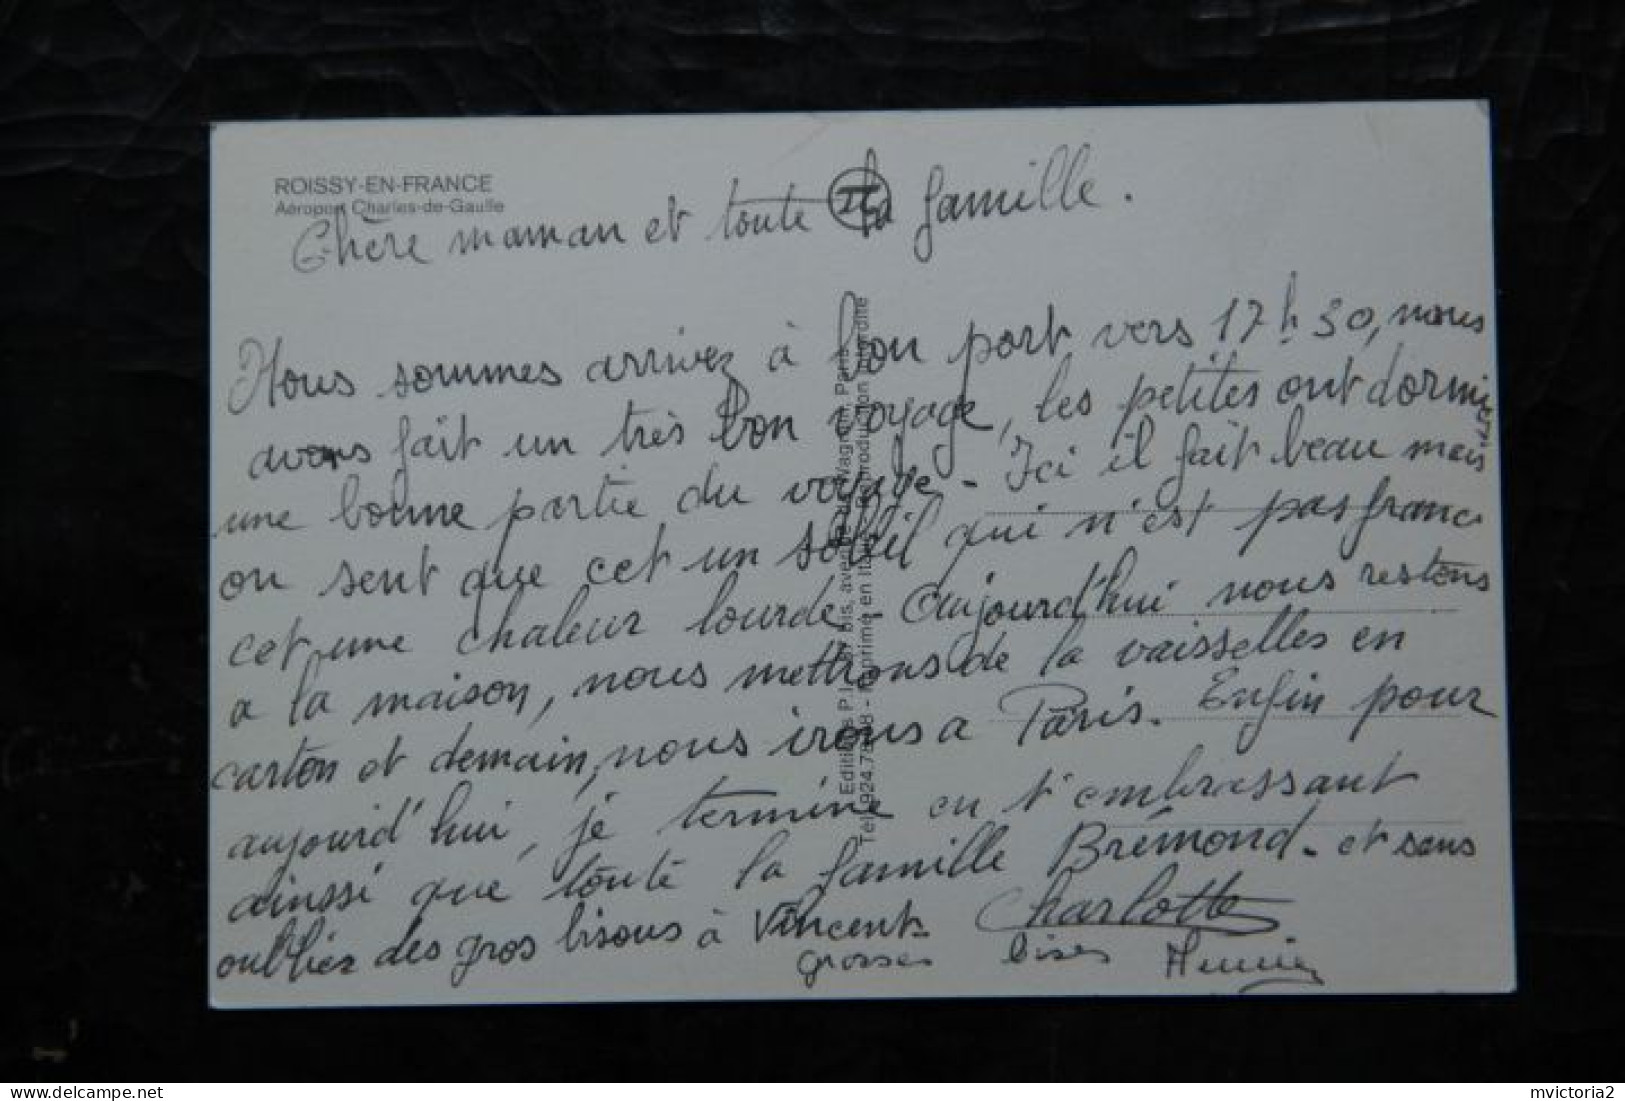 ROISSY-EN-FRANCE
Aéroport Charles-de-Gaulle
Chère maman et toute la famille.
Nous sommes arrivez à bon port vers 17h30, nous
avons fait un très bon voyage, les petites ont dormie
une bonne partie du voyage - Ici il fait beau mais
on sent que cet un soleil qui n'est pas franc
cet une chaleur lourde. Aujourd'hui nous restons
a la maison, nous mettrons de la vaisselles en
carton et demain, nous irons a Paris. Enfin pour
aujourd'hui, je termine en t'embrassant
ainssi que toute la famille Brémond. et sans
oublier des gros bisous à Vincent. Charlotte
grosses bises
Editions P.I. bis, avenue de Wagram, Paris
Tél. 924.73 8 - Imprimé en Reproduction interdite
mvictoria2